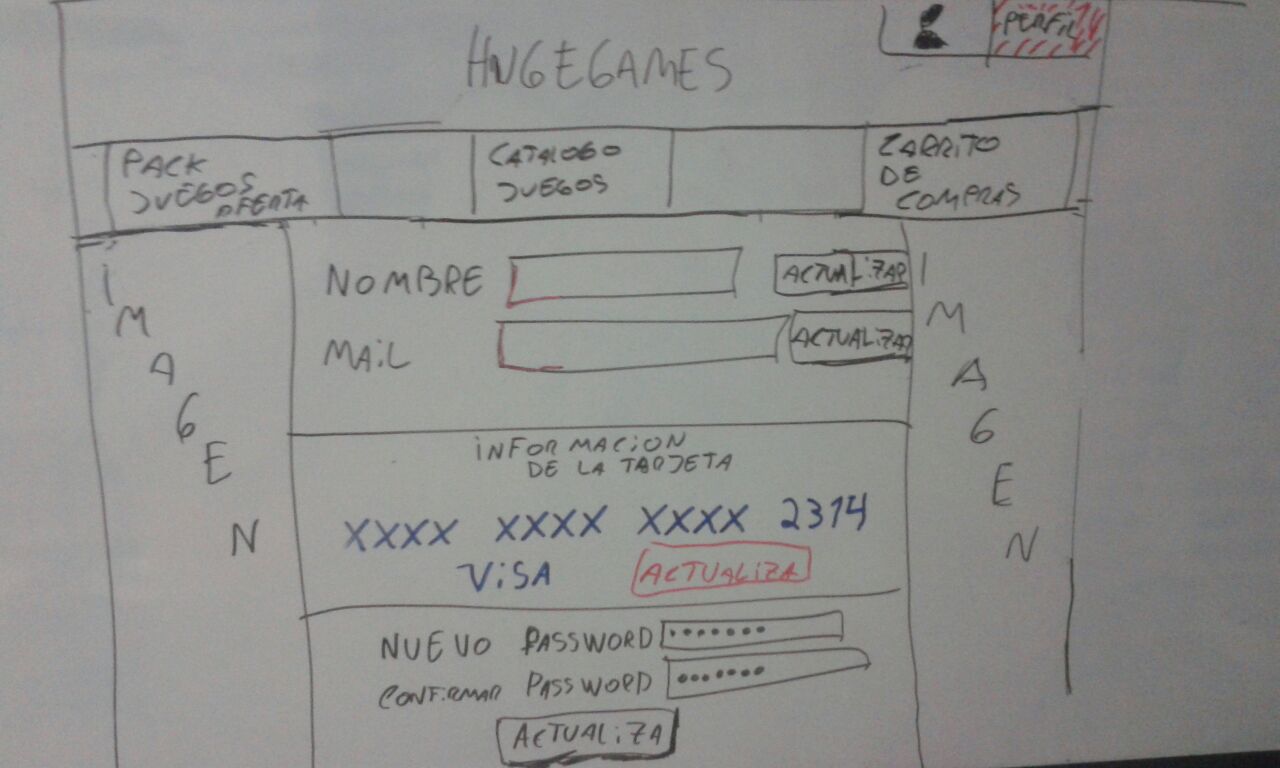 HUGEGAMES
PERFIL
PACK
JUEGOS
OFERTA
CATALOGO
JUEGOS
CARRITO
DE
COMPRAS
IMAGEN
NOMBRE
ACTUALIZAR
MAIL
ACTUALIZAR
INFORMACION
DE LA TARJETA
XXXX XXXX XXXX 2314
VISA
ACTUALIZA
NUEVO PASSWORD
CONFIRMAR PASSWORD
ACTUALIZA
IMAGEN